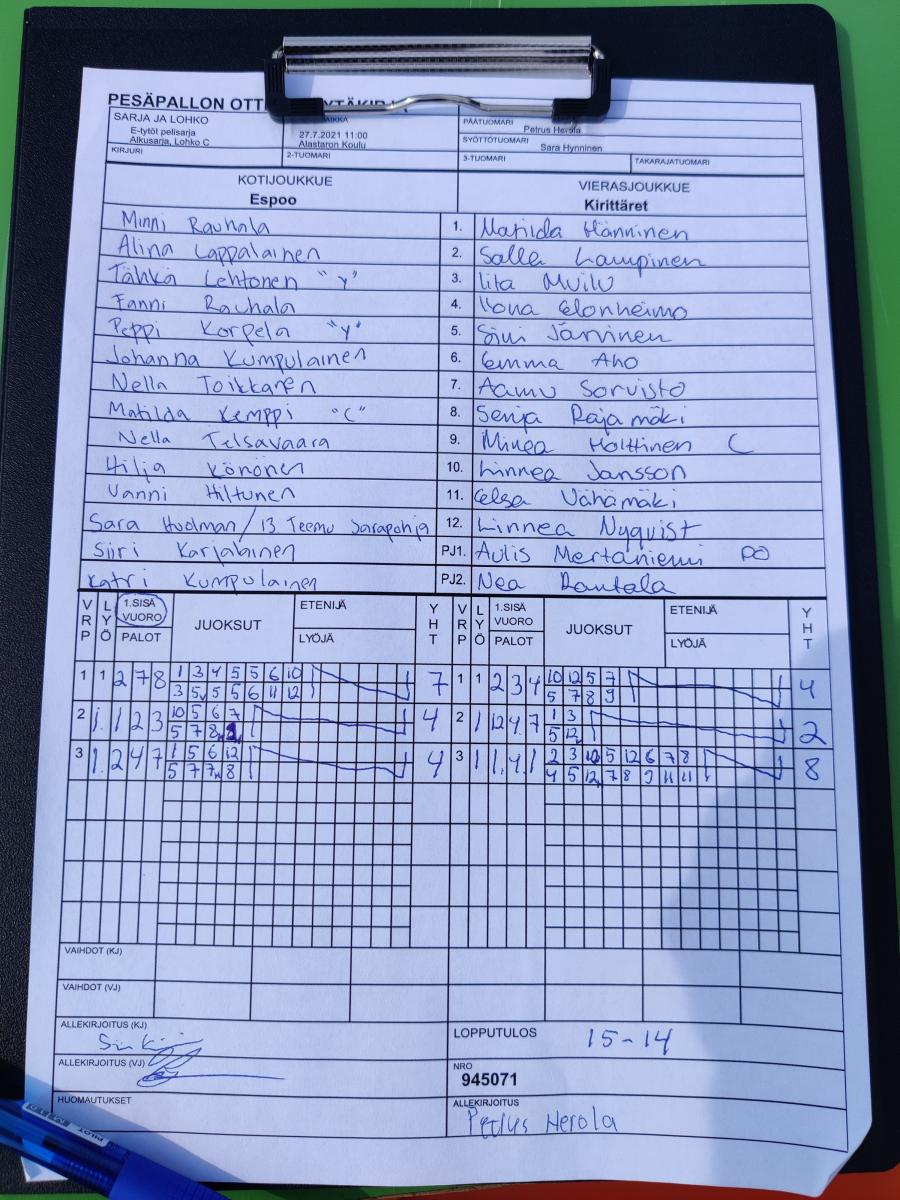 PESÄPALLON
SARJA JA LOHKO
E-tytöt pelisarja
Alkusarja, Lohko C
27.7.2021 11:00
Alastaron Koulu
PÄÄTUOMARI
Petrus Herola
SYÖTTÖTUOMARI
Sara Hynninen
KIRJURI
2-TUOMARI
3-TUOMARI
TAKARAJATUOMARI
KOTIJOUKKUE
Espoo
VIERASJOUKKUE
Kirittäret
Minni Rauhala 1. Matilda Hänninen
Alina Lappalainen 2. Salla Lampinen
Tähkä Lehtonen "Y" 3. Iita Muilu
Fanni Rauhala 4. Ilona Elonheimo
Peppi Korpela "Y" 5. Sini Järvinen
Johanna Kumpulainen 6. Emma Aho
Nella Toikkanen 7. Aamu Sorvisto
Matilda Kemppi "C" 8. Senja Rajamäki
Nella Telsavaara 9. Minea Holttinen C
Hilja Könönen 10. Linnea Jansson
Vanni Hiltunen 11. Elsa Vähämäki
Sara Huolman / 13. Teemu Sarapohja 12. Linnea Nyqvist
Siiri Karjalainen PJ1. Aulis Mertaniemi PO
Katri Kumpulainen PJ2. Nea Rautala
VRP LYÖ 1.SISÄ VUORO PALOT JUOKSUT ETENIJÄ LYÖJÄ YHT VRP LYÖ 1.SISÄ VUORO PALOT JUOKSUT ETENIJÄ LYÖJÄ YHT
1 1 2 7 8 1 3 4 5 5 6 10 7 1 1 2 3 4 10 12 5 7 4
3 5 5 5 6 11 12 5 7 8 9
2 1. 1 2 3 10 5 6 7 4 2 1 12 4 7 1 3 2
5 7 8 5 12
3 1. 2 4 7 1 5 6 12 4 3 1 1 4 1 2 3 10 5 12 6 7 8 8
5 7 7 8 4 5 12 7 8 9 11 11
VAIHDOT (KJ)
VAIHDOT (VJ)
ALLEKIRJOITUS (KJ)
LOPPUTULOS 15-14
ALLEKIRJOITUS (VJ)
NRO
945071
HUOMAUTUKSET
ALLEKIRJOITUS
Petrus Herola
PILOT